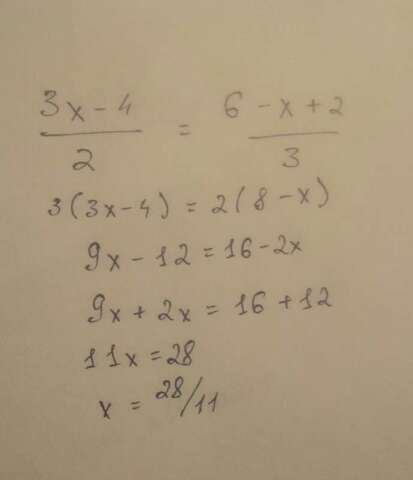 3x - 4 / 2 = 6 - x + 2 / 3
3(3x - 4) = 2(8 - x)
9x - 12 = 16 - 2x
9x + 2x = 16 + 12
11x = 28
x = 28/11